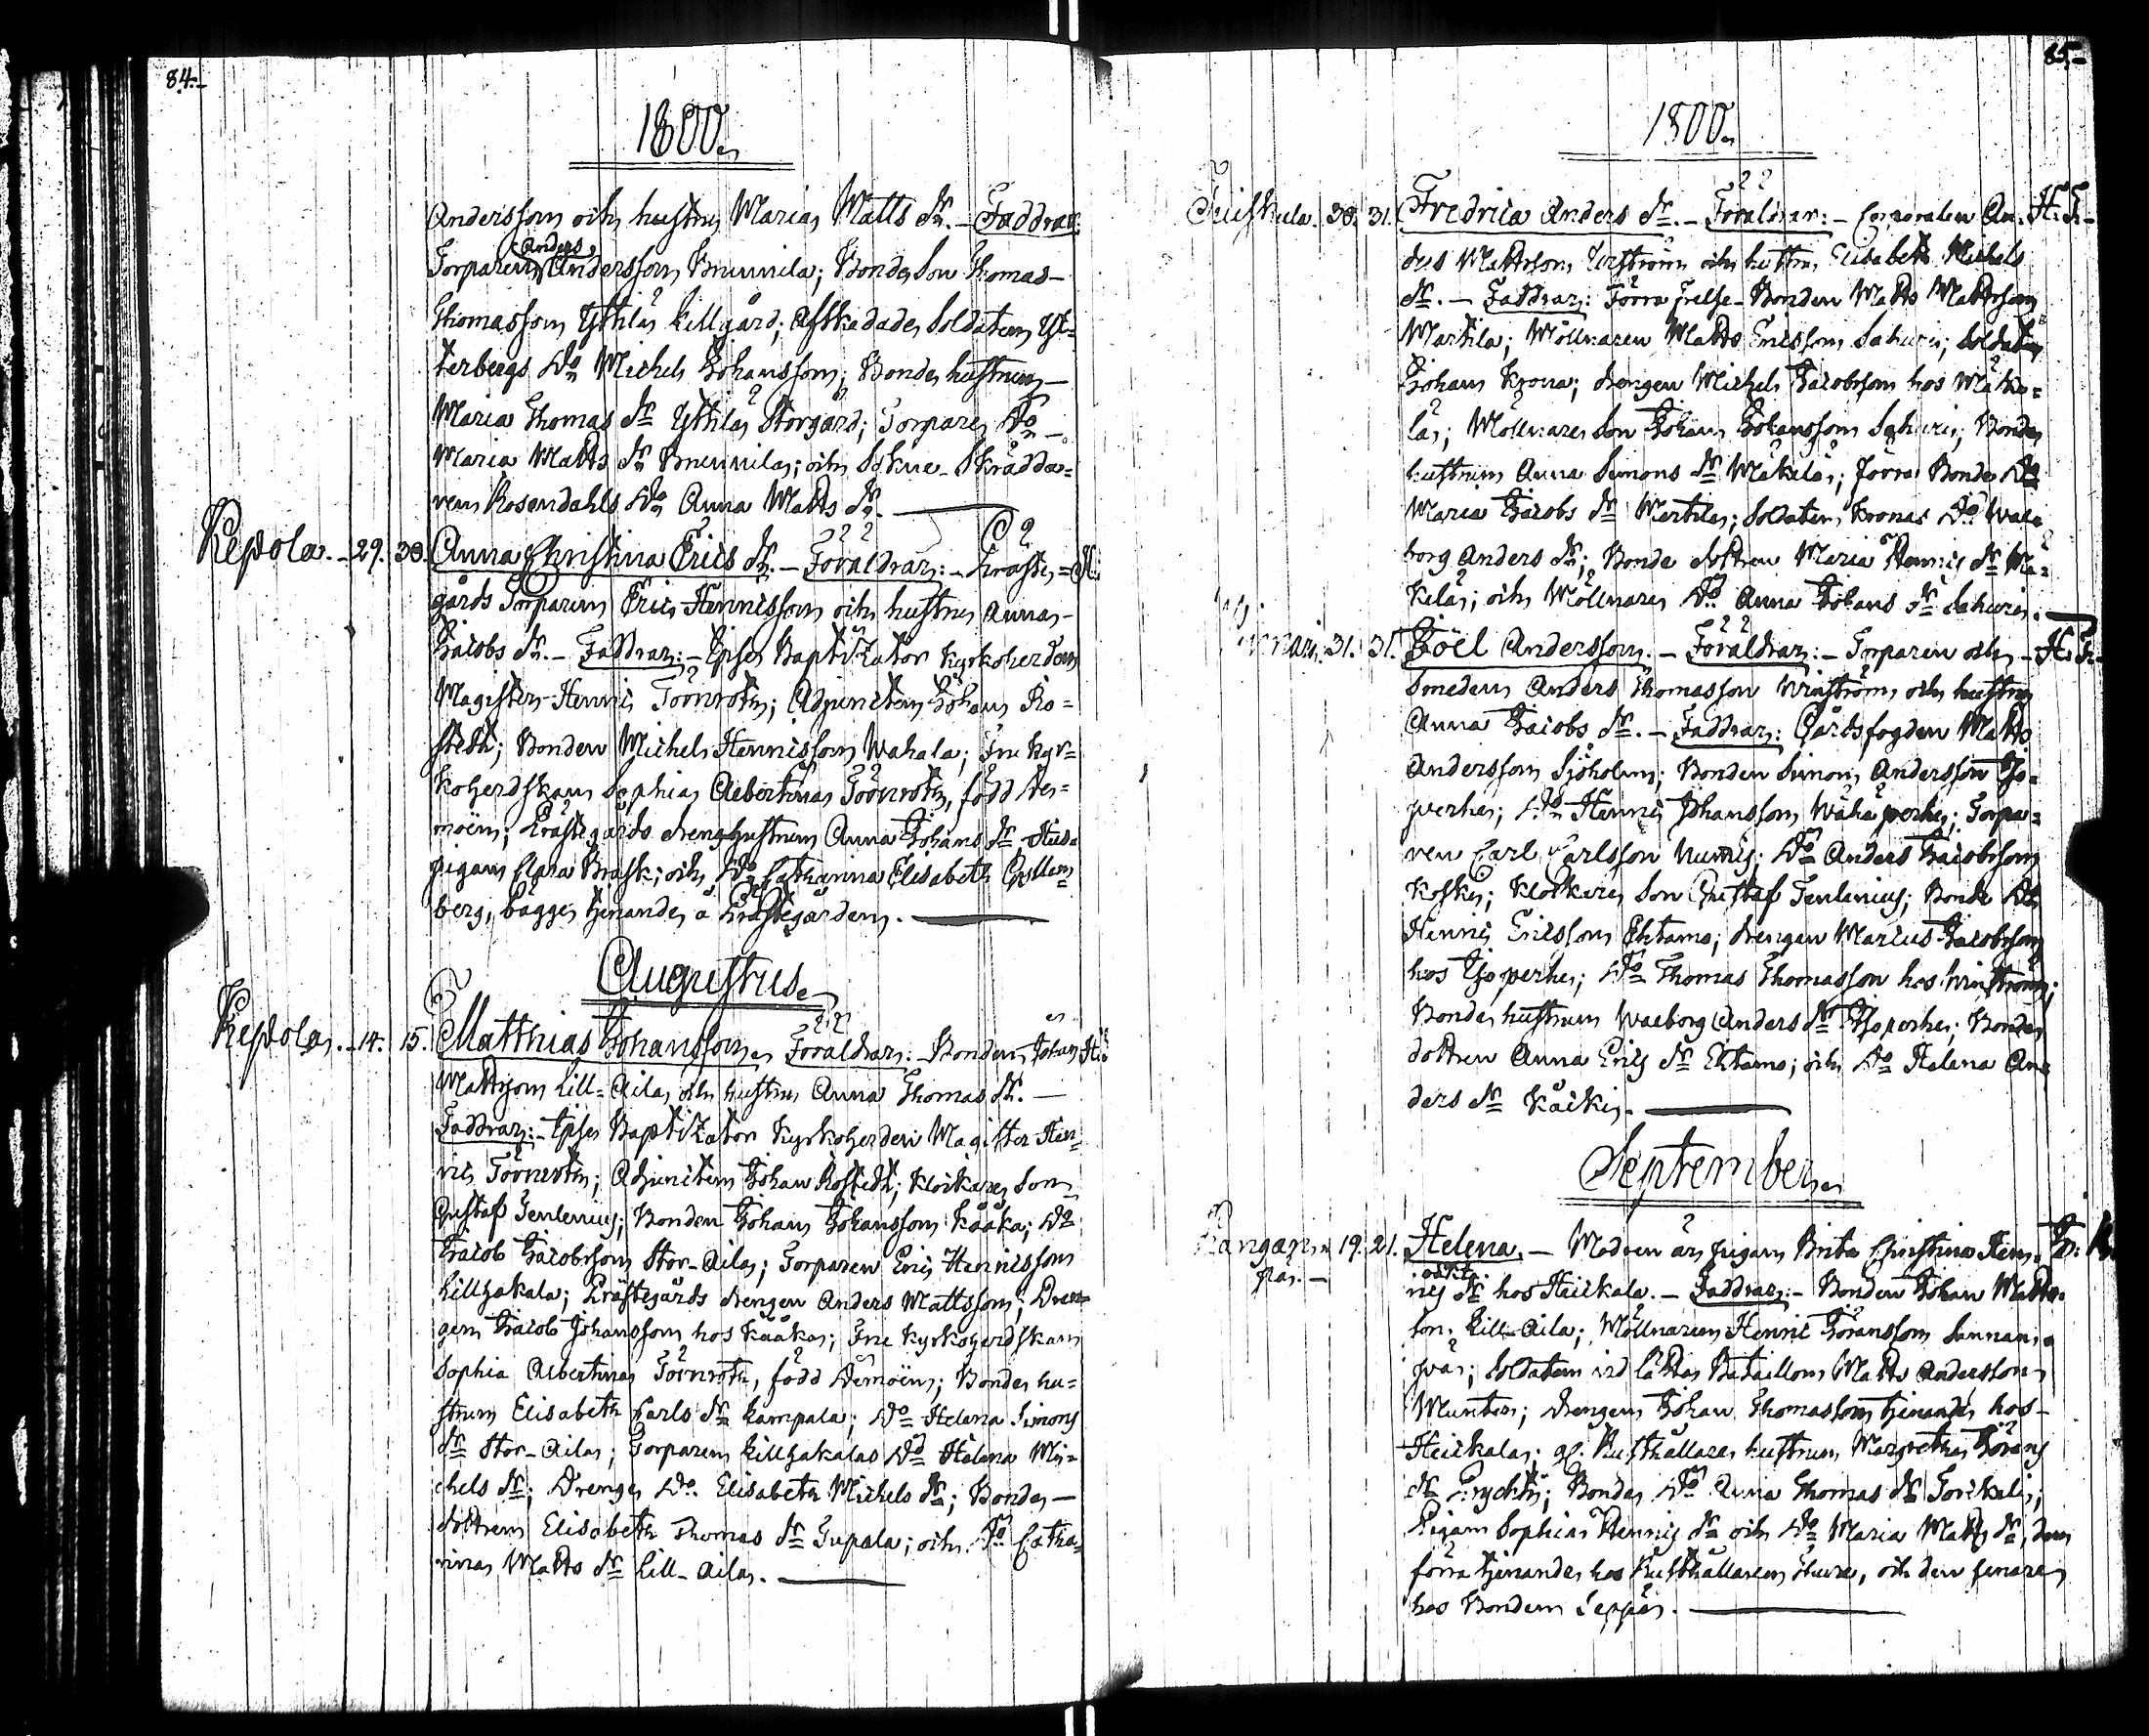 84.
1800.
Andersson och hustru Maria Matts dr. - Faddrar:
Anders
Torparen Andersson Brunnila; Bonde Son Thomas
Thomasson Yttilä Lillgård; Afskadade Soldaten Ys-
terbergs Do Michel Johansson; Bonde hustrun
Maria Thomas dr Yttilä Storgård; Torpare Do
Maria Matts dr Brunnila; och Sokne-Skrädda-
ren Rosendahls Do Anna Matts dr.
Kepola. 29. 30. Anna Christina Erics dr. - Föräldrar: - Præste-
gårds Torparen Eric Henricsson och hustru Anna
Jacobs dr. - Faddrar: - Ipse Baptizator Kyrkoherden
Magister Henric Törnroth; Adjuncten Johan Ro-
stedt; Bonden Michel Henricsson Wahala; Fru Kyr-
koherdskan Sophia Albertina Törnroth, född De-
moën; Prästegårds drenghustrun Anna Johans dr; Hus-
pigan Clara Brask; och Do Catharina Elisabeth Gyllen-
berg, bägge tjenande å Prästegården.
Augustus.
Kepola. 14. 15. Matthias Johansson. Föräldrar: - Bonden Johan
Mattsson Lill-Aila, och hustru Anna Thomas dr.
Faddrar: - Ipse Baptizator Kyrkoherden Magister Hen-
ric Törnroth; Adjuncten Johan Rostedt; Klockare Son
Gustaf Tenlenius; Bonden Johan Johansson Kääkä; Do
Jacob Jacobsson Stor-Aila; Torparen Eric Henricsson
Lillhakala; Prästegårds drengen Anders Mattsson; Dren-
gen Jacob Johansson hos Kääkä; Fru Kyrkoherdskan
Sophia Albertina Törnroth, född Demoën; Bonde hu-
strun Elisabeth Carls dr Kampala; Do Helena Simons
dr Stor-Aila; Torparen Lillhakalas Do Helena Mi-
chels dr; Drenge Do Elisabeth Michels dr; Bonde
dottren Elisabeth Thomas dr Tupala; och Do Catha-
rina Matts dr Lill-Aila.
85.
1800.
30. 31. Fredrica Anders dr. - Föräldrar: - Corporalen An- H. T.
ders Mattsson och hustru Elisabeth Michels
dr. - Faddrar: Förra Frelse-Bonden Matts Mattsson
Marttila; Möllnaren Matts Ericsson Sahuri; Soldaten
Johan Krona; drengen Michel Jacobsson hos Mäke-
lä; Möllnare Son Johan Johansson Sahuri; Bonde
hustrun Anna Simons dr Mäkelä; förra Bonde Do
Maria Jacobs dr Marttila; Soldaten Kronas Do Wal-
borg Anders dr; Bonde dottren Maria Henrics dr Mä-
kelä; och Möllnare Do Anna Johans dr Sahuri.
31. 31. Joël Andersson. - Föräldrar: - Torparen och H. T.
Smeden Anders Thomasson Winström, och hustru
Anna Jacobs dr. - Faddrar: Gårdsfogden Matts
Andersson Sjöholm; Bonden Simon Andersson Iso-
perhe; Do Henric Johansson Wähäperhe; Torpa-
ren Carl Carlsson Nummi; Do Anders Jacobsson
Koski; Klockare Son Gustaf Tenlenius; Bonde Do
Henric Ericsson Ehtamo; drengen Marcus Jacobsson
hos Isoperhe; Do Thomas Thomasson hos Winström;
Bonde hustrun Walborg Anders dr Isoperhe; Bonde
dottren Anna Erics dr Ehtamo; och Do Helena An-
ders dr Käiki.
September.
19. 21. Helena. - Modren är pigan Brita Christina Hen-
rics dr hos Heickala. - Faddrar: - Bonden Johan Matts-
son Lill-Aila; Möllnaren Henric Göransson Sannan-
pää; Soldaten vid Lätta Bataillon Matts Andersson
Munter; drengen Johan Thomasson tjenande hos
Heickala; gl. Rusthållare hustrun Margretha Görans
dr Prychti; Bonde Do Anna Thomas dr
Pigan Sophia Henrics dr och Do Maria Matts dr, den
förra tjenande hos Rusthållaren och den senare
hos Bonden Seppä.